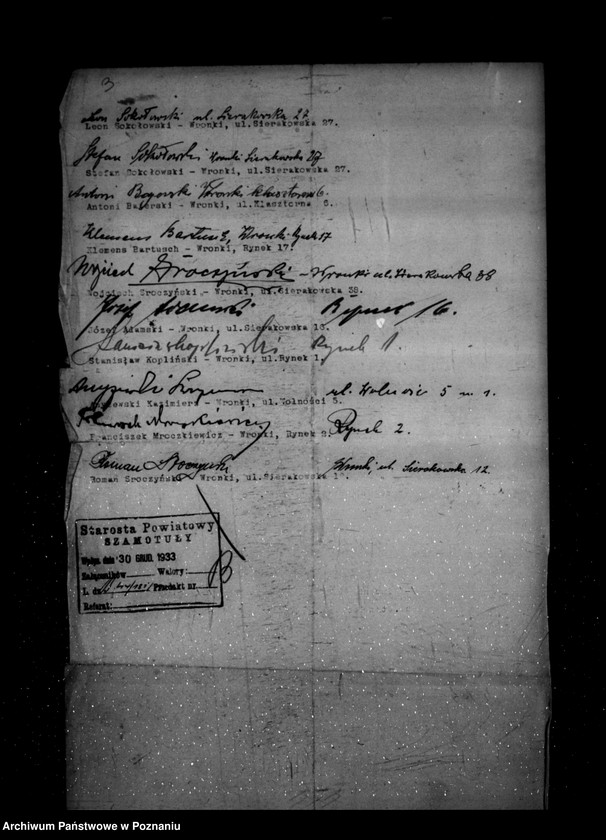 3
Leon Sokołowski ul. Sierakowska 27
Leon Sokołowski - Wronki, ul.Sierakowska 27.
Stefan Sokołowski Wronki Sierakowska 27
Stefan Sokołowski - Wronki, ul.Sierakowska 27.
Antoni Wronki klasztorna 6
Antoni - Wronki, ul.Klasztorna 6.
Klemens Bartusch, Wronki Rynek 17
Klemens Bartusch - Wronki, Rynek 17.
Wojciech Sroczyński - Wronki ul. Sierakowska 38
Wojciech Sroczyński - Wronki, ul.Sierakowska 38.
Józef Adamski Rynek 16.
Józef Adamski - Wronki, ul.Sierakowska 16.
Stanisław Kopliński Rynek 1.
Stanisław Kopliński - Wronki, ul.Rynek 1.
ul. Wolności 5 m. 1.
Kazimierz - Wronki, ul.Wolności 5.
Franciszek Mroczkiewicz Rynek 2.
Franciszek Mroczkiewicz - Wronki, Rynek 2.
Roman Sroczyński Wronki, ul. Sierakowska 12
Roman Sroczyński - Wronki, ul.Sierakowska
Starosta Powiatowy
SZAMOTUŁY
Wpłyn. dnia 30 GRUD. 1933
Załączników Walory:
L. dz. Produkt nr
Referat:
Archiwum Państwowe w Poznaniu